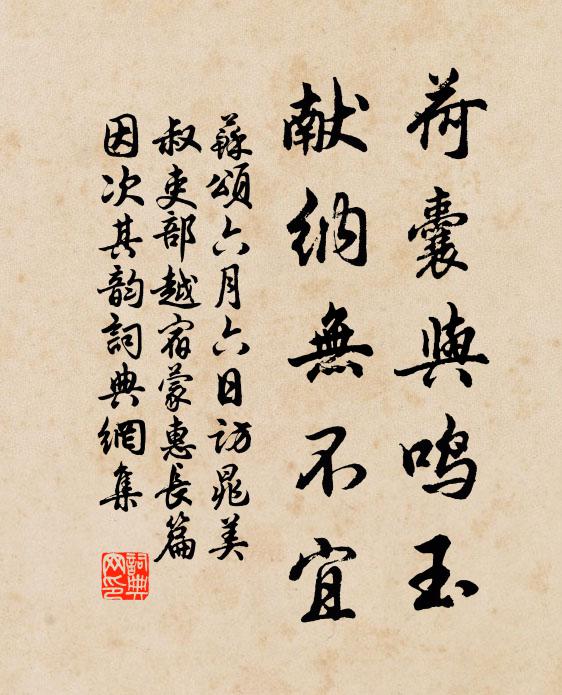 荷囊與鸣玉
献纳無不宜
蘇頌六月六日訪晁美
叔吏部越宿蒙惠長篇
因次其韵詞典網集
詞典网印